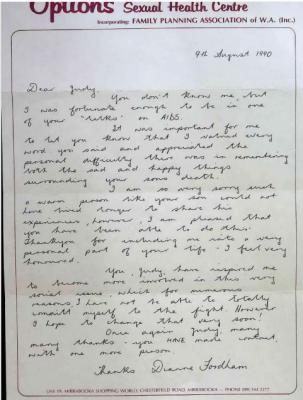 Options Sexual Health Centre
Incorporating: FAMILY PLANNING ASSOCIATION of W.A. (Inc.)
9th August 1990
Dear Judy,
You don't know me, but
I was fortunate enough to be in one
of your "talks" on AIDS.
It was important for me
to let you know that I valued every
word you said and appreciated the
personal difficulty there was in remembering
both the sad and happy things
surrounding your sons death.
I am so very sorry such
a warm person like your son could not
have lived longer to share his
experiences, however, I am pleased that
you have been able to do this.
Thankyou for including me into a very
personal part of your life - I feel very
honoured.
You, Judy, have inspired me
to become more involved in this very
social issue, which for numerous
reasons, I have not be able to totally
commit myself to the fight. However
I hope to change that very soon!
Once again Judy, many
many thanks - you HAVE made contact
with one more person.
Thanks Dianne Fordham
MIRRABOOKA SHOPPING WORLD, CHESTERFIELD ROAD, MIRRABOOKA